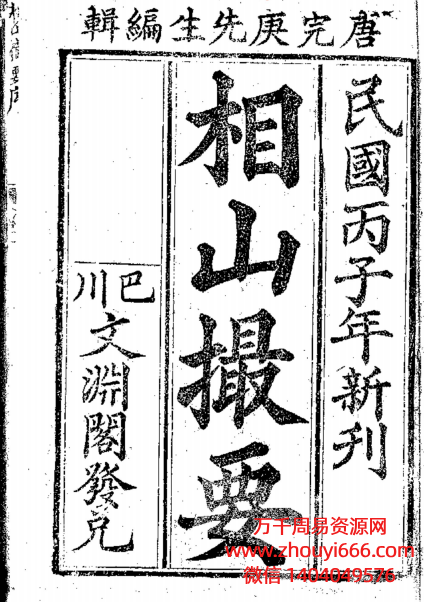 唐完庚先生編輯
民國丙子年新刊
相山撮要
巴川
文淵閣發兌
万千周易资源网
www.zhouyi666.com
微信 1404049576